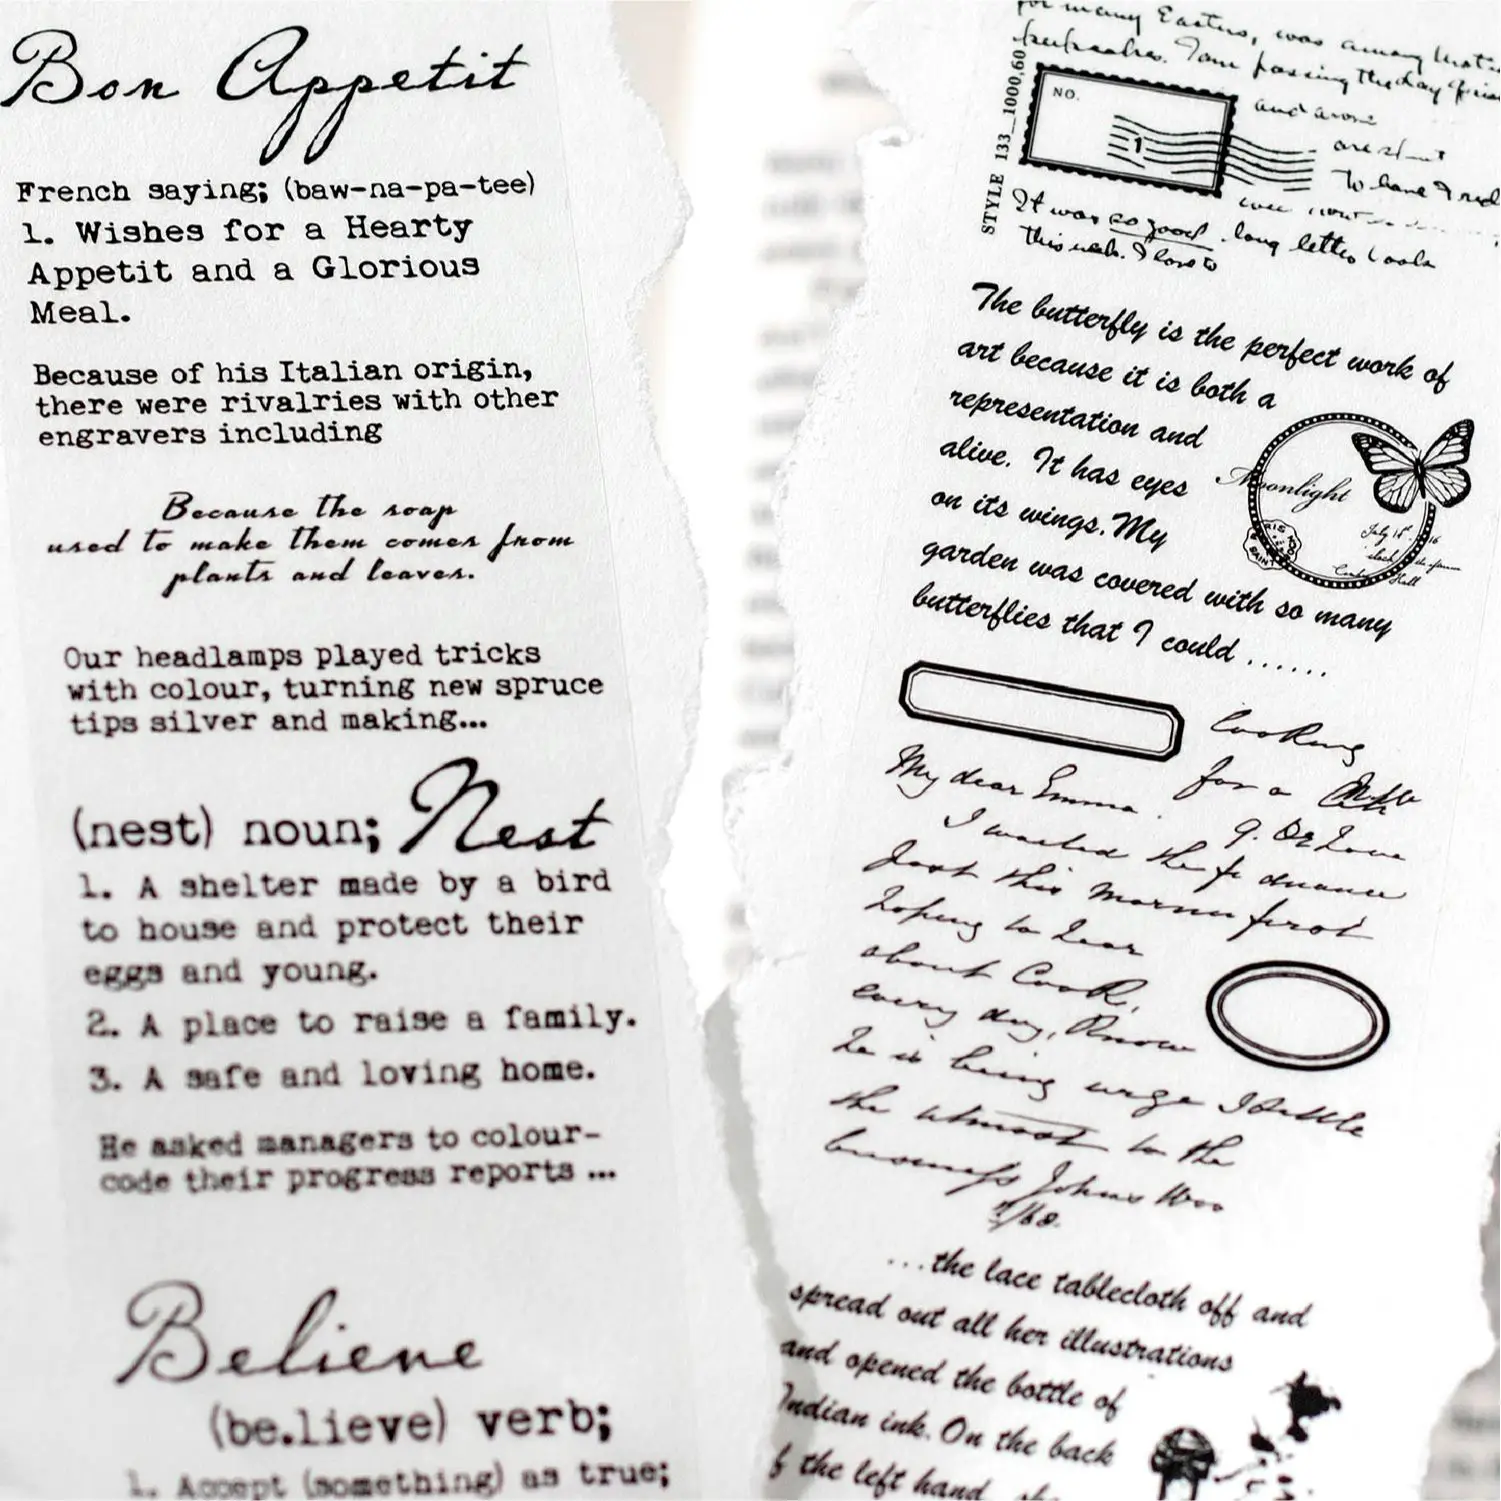 Bon Appetit
French saying; (baw-na-pa-tee)
1. Wishes for a Hearty
Appetit and a Glorious
Meal.
Because of his Italian origin,
there were rivalries with other
engravers including
Because the soap
used to make them comes from
plants and leaves.
Our headlamps played tricks
with colour, turning new spruce
tips silver and making...
(nest) noun; Nest
1. A shelter made by a bird
to house and protect their
eggs and young.
2. A place to raise a family.
3. A safe and loving home.
He asked managers to colour-
code their progress reports ...
Believe
(be.lieve) verb;
1. Accept (something) as true;
for many Easters, was among
I am passing the day
and
NO.
1
STYLE 133__1000,60
To have I
It was so good. long letter
this week. I love to
The butterfly is the perfect work of
art because it is both a
representation and
alive. It has eyes
on its wings. My
garden was covered with so many
butterflies that I could ......
Moonlight
July 15th
Hall
looking
for a
My dear Emma.
I the
just this first
hoping to hear
about Cook,
every day, Know
he is being urge
the utmost to the
business Johns Woo
...the lace tablecloth off and
spread out all her illustrations
and opened the bottle of
Indian ink. On the back
the left hand